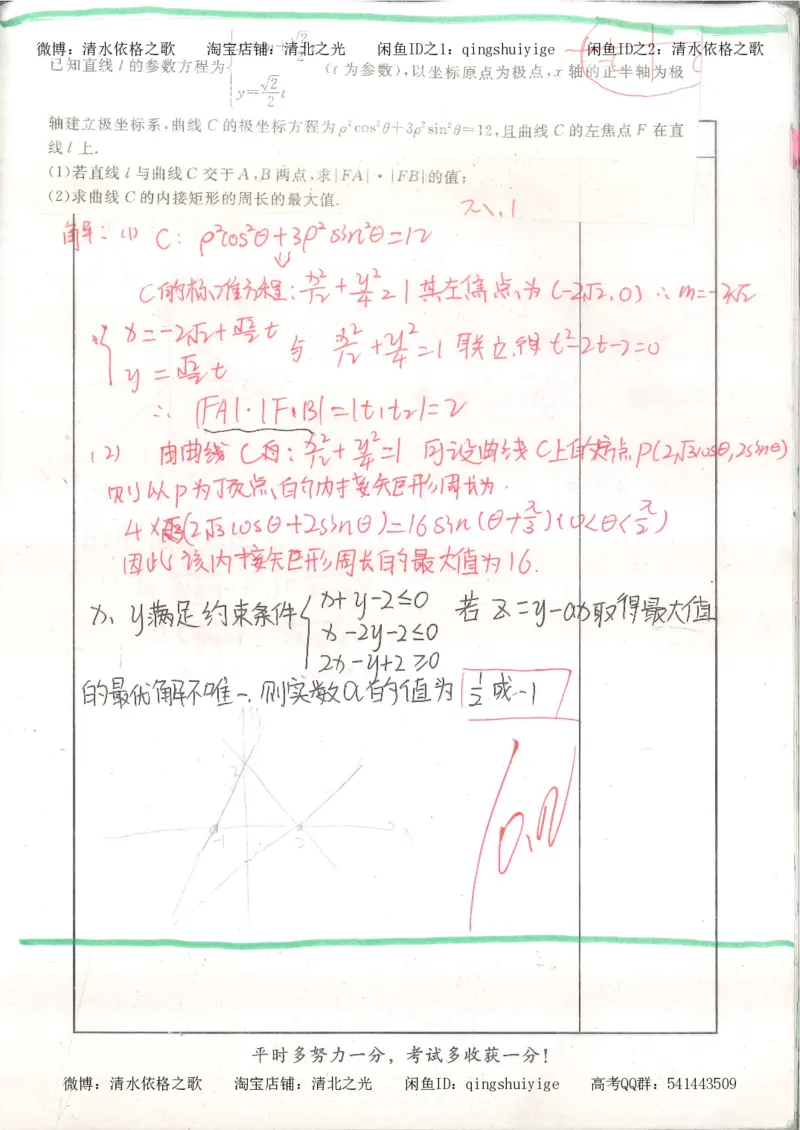 微博：清水依格之歌 淘宝店铺：清北之光 闲鱼ID之1：qingshuiyige 闲鱼ID之2：清水依格之歌
已知直线 l 的参数方程为 (t 为参数)，以坐标原点为极点，x 轴的正半轴为极
y=√2/2 t
轴建立极坐标系，曲线 C 的极坐标方程为 ρ²cos²θ+3ρ²sin²θ=12，且曲线 C 的左焦点 F 在直
线 l 上.
(1)若直线 l 与曲线 C 交于 A，B 两点，求|FA|·|FB|的值；
(2)求曲线 C 的内接矩形的周长的最大值.
解：(1) C：ρ²cos²θ+3ρ²sin²θ=12
C的标准方程：x²/12+y²/4=1 其左焦点为(-2√2,0) ∴m=-2√2
{x=-2√2+√2/2 t
y=√2/2 t
与 x²/12+y²/4=1 联立得 t²-2t-2=0
∴|FA|·|FB|=|t₁t₂|=2
(2) 由曲线C为：x²/12+y²/4=1 可设曲线C上的动点P(2√3cosθ,2sinθ)
则以P为顶点的内接矩形周长为
4×(2√3cosθ+2sinθ)=16sin(θ+π/3)(0<θ<π/2)
因此该内接矩形周长的最大值为16.
x、y满足约束条件{x+y-2≤0 若z=y-ax取得最大值
x-2y-2≤0
2x-y+2≥0
的最优解不唯一,则实数a的值为 1/2或-1
y
2
-1 2 x
平时多努力一分，考试多收获一分！
微博：清水依格之歌 淘宝店铺：清北之光 闲鱼ID：qingshuiyige 高考QQ群：541443509